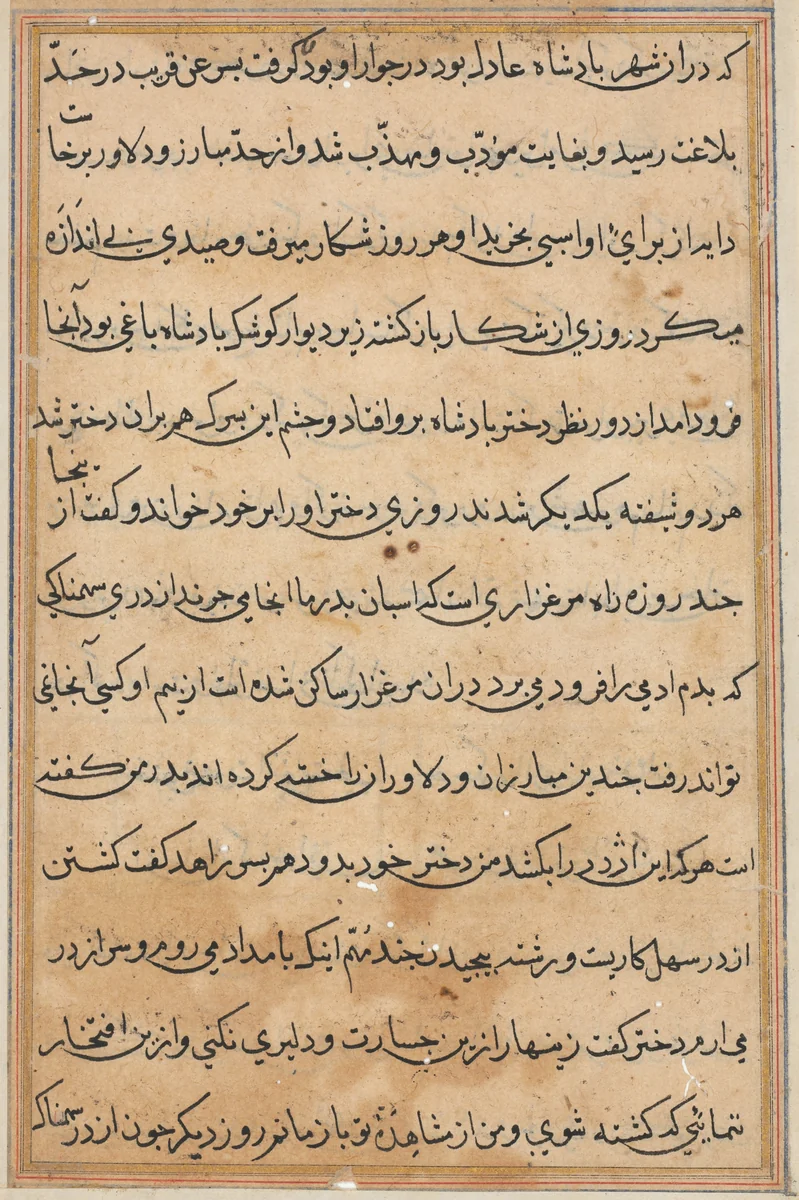 که دران شهر بادشاه عادل بود در جوار او بود گرفت بس عن قریب در حدّ
بلاغت رسید و بغایت مؤدّب و مهذّب شد و از حدّ مبارز و دلاور برخاست
داید از برای او اسبی بخرید او هر روز شکار میرفت و صیدی بی اندازه
میکرد روزی از شکار باز کشته زیر دیوار کوشک بادشاه باغی بود آنجا
فرود امد از دور نظر دختر بادشاه برو افتاد و جشم این بسرک هم بران دختر شد
هر دو شیفته یکدیکر شدند روزی دختر او را بر خود خواند و کفت از ینجا
جند روزه راه مرغزاری است که اسبان بدر ما انجا می جرند ازدری سهمناکی
که بدم ادمی را فرود می برد دران مرغزار ساکن شده است از بیم او کسی آنجا نمی
تواند رفت جندین مبارزان و دلاوران را خسته کرده اند بدر من کفته
است هرکه این اژدر را بکشد من دختر خود بدو دهم بسر زاهد کفت کشتن
ازدر سهل کاریست و رشته بیجیدن جند مُهمّ اینک بامداد می روم و سر ازدر
می ارم دختر کفت زینهار ازین جسارت و دلیری نکنی و ازین افتخار
ننمائی که کشته شوی و من از مشاهدهٔ تو باز مانم روز دیکر جون ازدر سهمناک